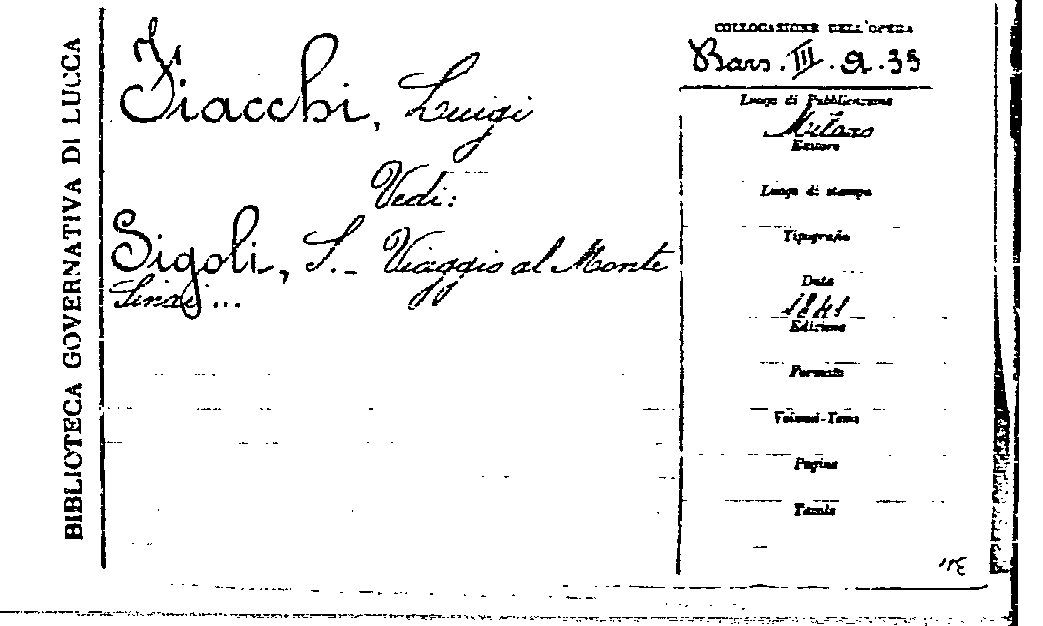 BIBLIOTECA GOVERNATIVA DI LUCCA
Fiacchi, Luigi
Vedi:
Sigoli, S. - Viaggio al Monte
Sinai ...
COLLOCAZIONE DELL'OPERA
Bars. III. a. 35
Luogo di Pubblicazione
Milano
Editore
Luogo di stampa
Tipografo
Data
1841
Edizione
Formato
Volumi-Tomo
Pagine
Tavole